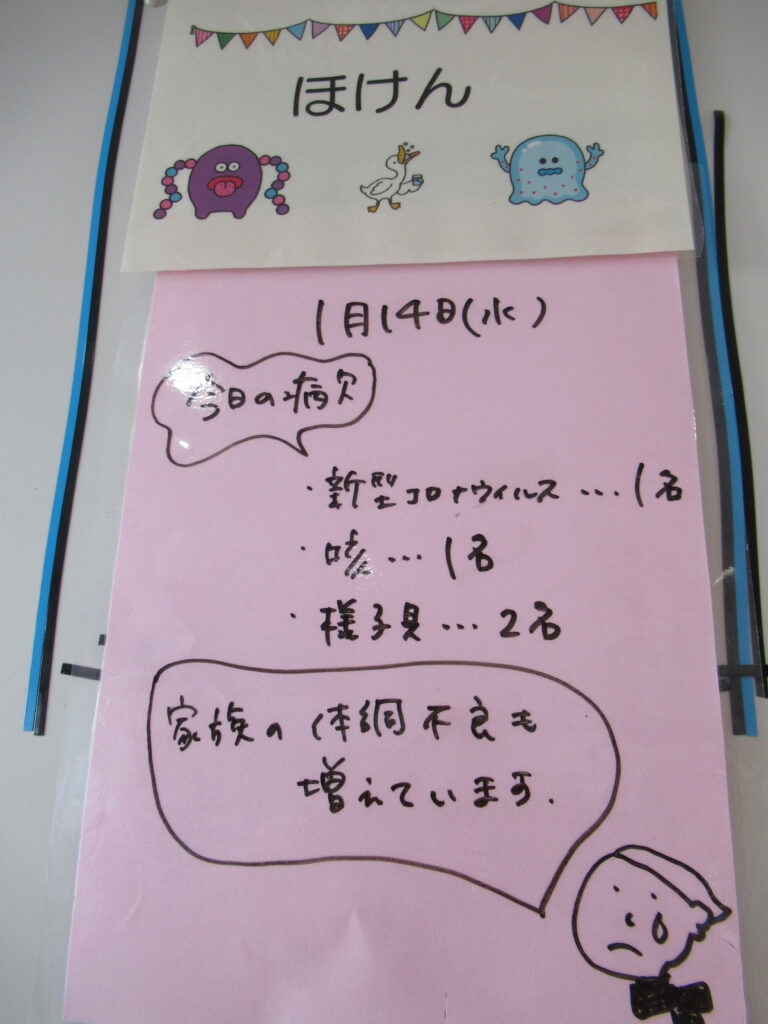 ほけん
1月14日(水)
今日の病欠
・新型コロナウィルス…1名
・咳…1名
・様子見…2名
家族の体調不良も
増えています.